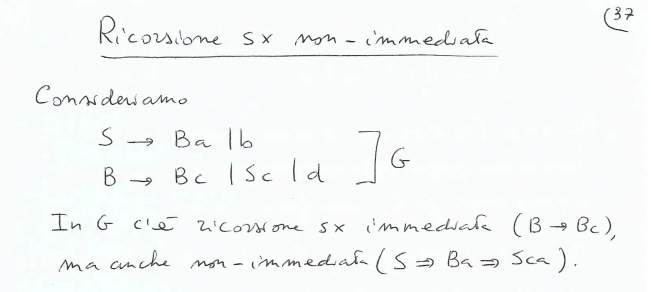 (37
Ricorsione sx non-immediata
Consideriamo
S → Ba | b
B → Bc | Sc | d ] G
In G c'è ricorsione sx immediata (B → Bc),
ma anche non-immediata (S ⇒ Ba ⇒ Sca).